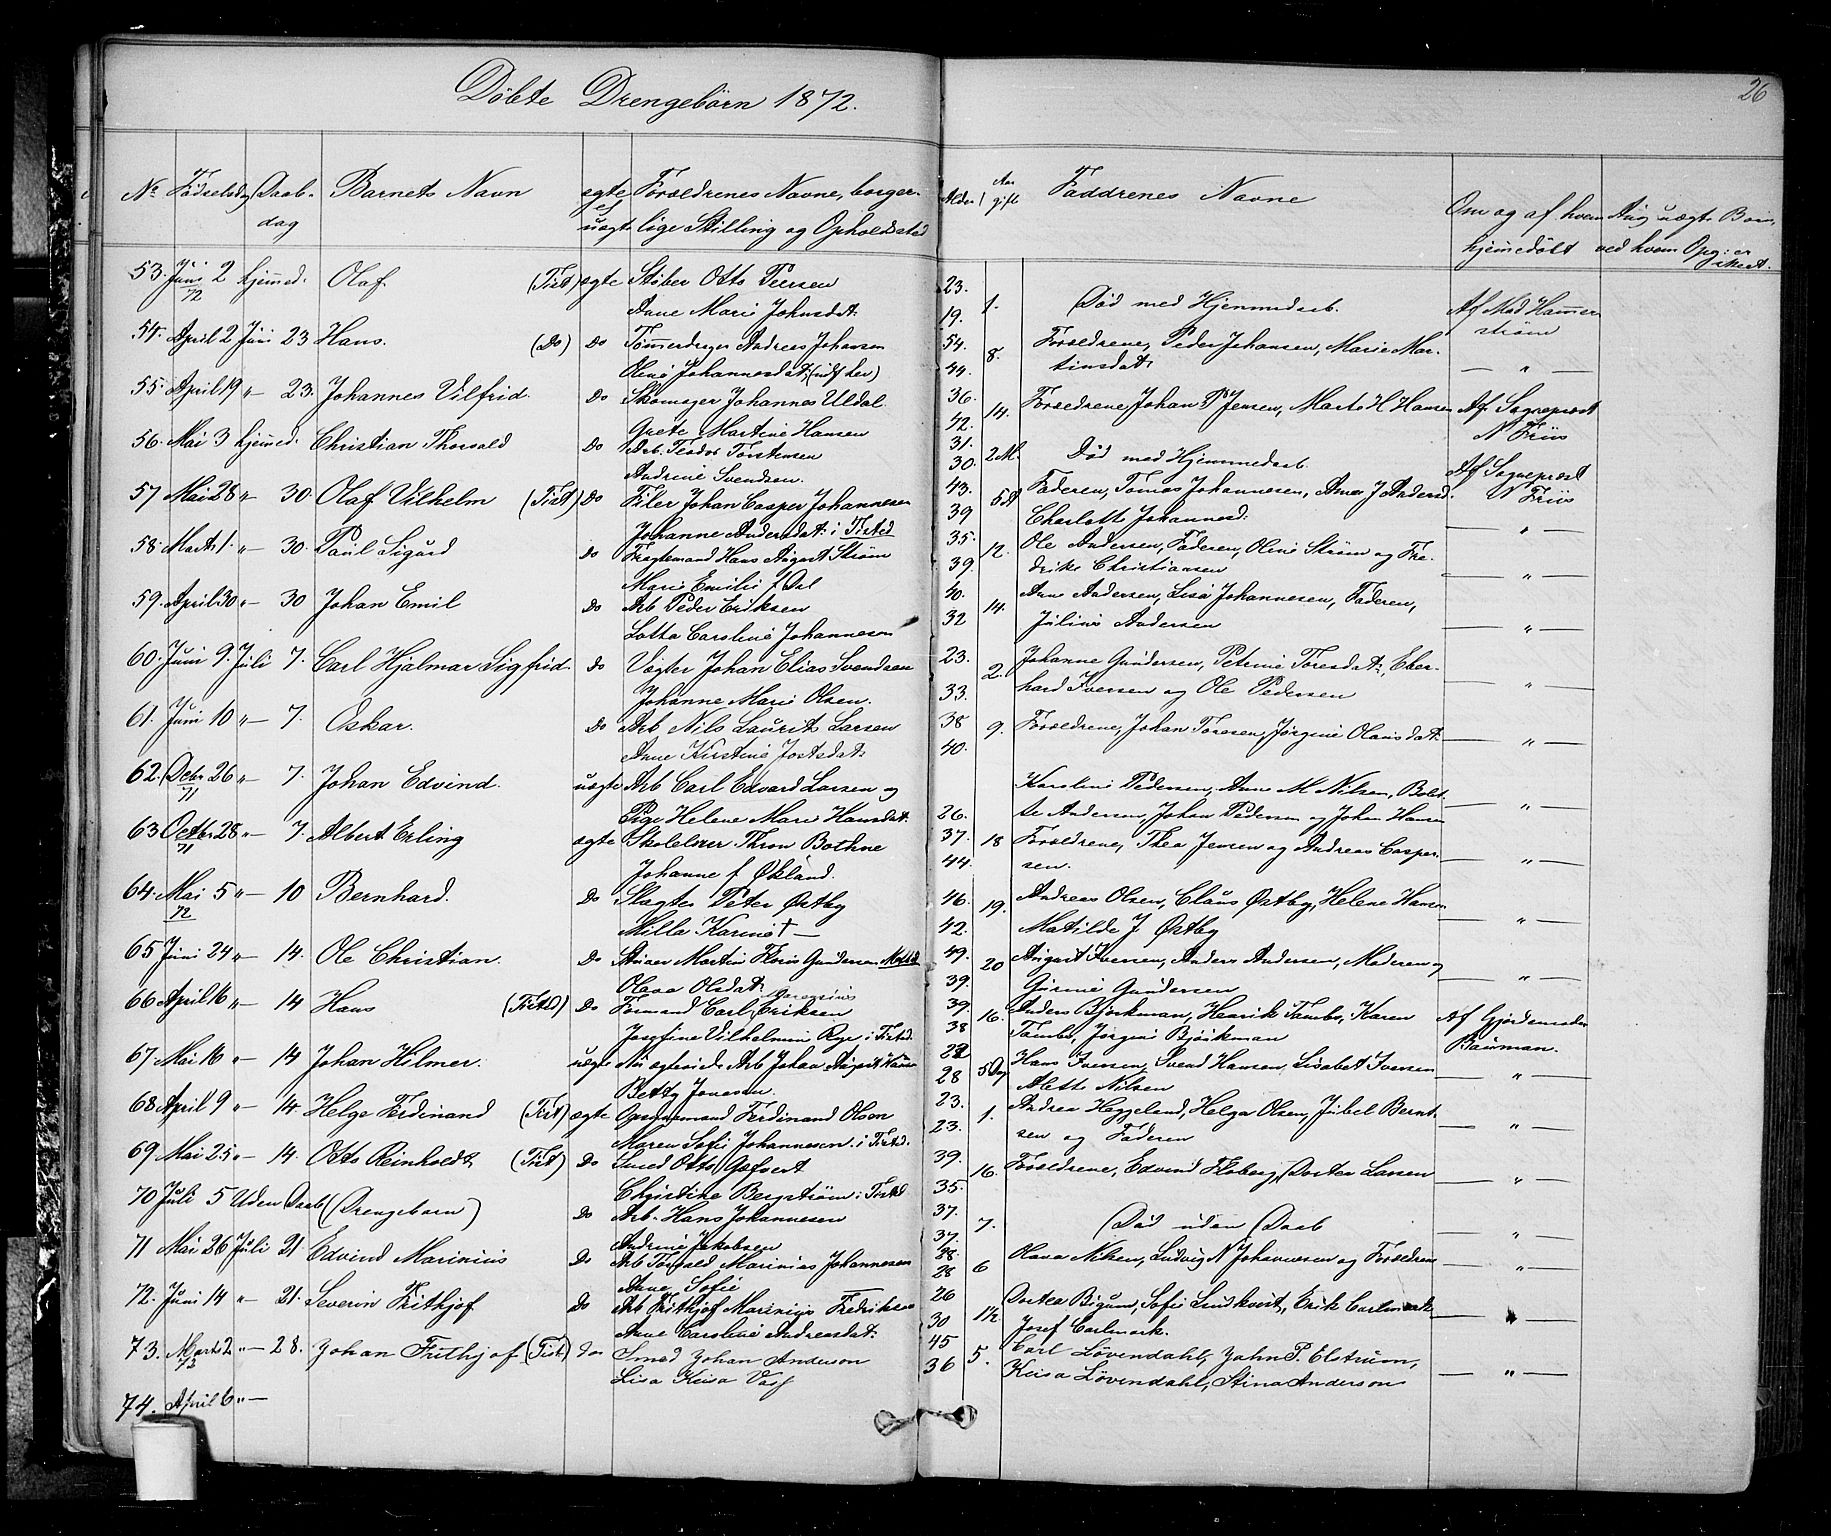 Döbte Drengebörn 1872.
26
No Födselsdg Daabdag Barnets Navn ægte el uægt Forældrenes Navne, borgerlige Stilling og Opholdssted Alder Aar gift Faddrenes Navne
Om og af hvem hjemmedöbt
53. Juni 2 72 hjemmed. Olaf (Tist) ægte Støber Otto Persen 23. 1. Död med Hjemmedaab. Af Mad Hammerström
Anne Marie Johnsdat: 19.
54. April 2 Juni 23 Hans. (Do) Do Tømmerdrager Andreas Johansen 54. 8. Forældrene, Peder Johansen, Marie Martinsdat: — " —
Oline Johannesdat: 44.
55. April 19 " 23. Johannes Vilfrid. Do Skomager Johannes Uldal 36. 14. Forældrene, Johan P Jensen, Marte H Hansen Af Sognepræst N Friis
Grete Martine Hansen 42.
56. Mai 3 hjemmed. Christian Thorvald Do Arb. Teodor Torstensen 31. 2 M. Död med Hjemmedaab.
Andrine Svendsen. 30.
57 Mai 28 " 30. Olaf Vilhelm (Tist) Do Filer Johan Casper Johannesen 43. Faderen, Tomas Johannesen, Anna J Andersd. Af Sognepræst N Friis
Johanne Andersdat: i Tisted 39 Charlotte Johannesd. — " —
58. Marts 1. " 30. Paul Sigurd Do Fragtemand Hans August Ström 35. 12. Ole Andersen, Faderen, Oline Ström og Fredrike Christiansen — " —
Marie Emilie f Dal 39.
59. April 30 " 30 Johan Emil Do Arb Peder Eriksen 40. 14. Ane Andersen, Lisa Johannesen, Faderen,
Lotta Caroline Johannesen 32 Julius Andersen — " —
60. Juni 9. Juli 7. Carl Hjalmar Sigfrid Do Vægter Johan Elias Svendsen 23. 2. Johanne Gundersen, Petrine Toresdat:, Eberhard Iversen og Ole Pedersen — " —
Johanne Marie Olsen. 33.
61. Juni 10 " 7. Oskar. Do Arb Nils Laurits Larsen 38 9. Forældrene, Johan Toresen, Jørgine Olausdat: — " —
Anne Kirstine Jostsdat: 40.
62. Debr 26 71 " 7. Johan Edvind. uægte Arb Carl Edvard Larsen og Karoline Pedersen, Ane M Nilsen, Bolette Andersen, Johan Pedersen og Johan Hansen — " —
Pige Helene Marie Hansdat: 26.
63 Octbr 28 71 " 7 Albert Erling ægte Skolelærer Thron Bothne 37. 18 Forældrene, Thea Jensen og Andreas Caspersen. — " —
Johanne f Økland. 44.
64. Mai 5 72 " 10 Bernhard. Do Slagter Peter Østby 46. 19. Andreas Olsen, Claus Østby, Helene Hansen
Milla Karine † — 42. Matilde J Østby — " —
65 Juni 24 " 14. Ole Christian. Do Martin Floris Gundersen 49. 20 August Iversen, Anders Andersen, Moderen og
Olava Olsdat: 39. Gurine Gundersen — " —
66 April 16 " 14 Hans (Tisted) Do Formand Carl Eriksen 39. 16. Anders Bjørkman, Henrik Tambo, Karen Tambo, Jørgine Bjørkman Af Gjordemoder Bauman.
Josefine Vilhelmine Rye i Tisted. 38
67 Mai 16 " 14 Johan Hilmer. uægte Arb Johan August 22 Hans Iversen, Svend Hansen, Lisabet Iversen
Betty Jonesen. 28 Alette Nilsen — " —
68 April 9 " 14. Helge Ferdinand (Tist) ægte Opsynsmand Ferdinand Olsen 23. 1. Andrea Heggeland, Helga Olsen, Jubel Berntsen og Faderen — " —
Maren Sofie Johannesen i Tisted. 23.
69 Mai 25 " 14. Otto Reinholdt (Tist) Do Smed Otto Gefvert 39. 16. Forældrene, Edvind Floberg, Dortea Larsen — " —
Christine Bergström i Tisted 35.
70 Juli 5 Uden Daab (Drengebarn) Do Arb. Hans Johannesen 37. 7. Död uden Daab — " —
Andrine Jakobsen 37.
71 Mai 26 Juli 21. Edvind Marinius Do Arb Torvald Marinius Johannesen 28 6 Olava Nilsen, Ludvig N Johannesen og Forældrene — " —
Anne Sofie 28
72. Juni 14 " 21. Severin Frithjof Do Arb Frithjof Marinius Fredriksen 26 1½ Dortea Bigum, Sofie Lindkvist, Erik Carlmark
Anne Caroline Andreasdat: 30 Josef Carlmark. — " —
73. Marts 2 72 " 28. Johan Frithjof (Tist) do Smed Johan Anderson 45 5. Carl Lövendahl, John P. Elström,
Lisa Keisa 36 Keisa Lövendahl, Stina Anderson — " —
74. April 6 " —